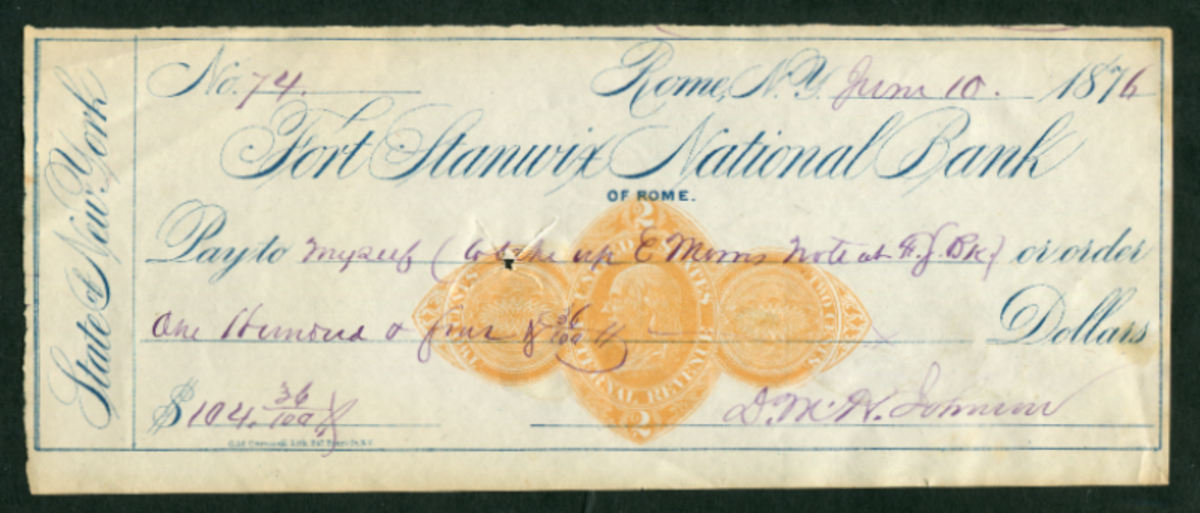 State of New York
No. 74.
Rome, N.Y. June 10. 1876
Fort Stanwix National Bank
OF ROME.
Pay to myself (to take up E Morris Note at F. J. Bk) or order
One Hundred & four & 36/100 Dollars
$104. 36/100
D. McH. Johnson
2
UNITED STATES
INTERNAL REVENUE
2